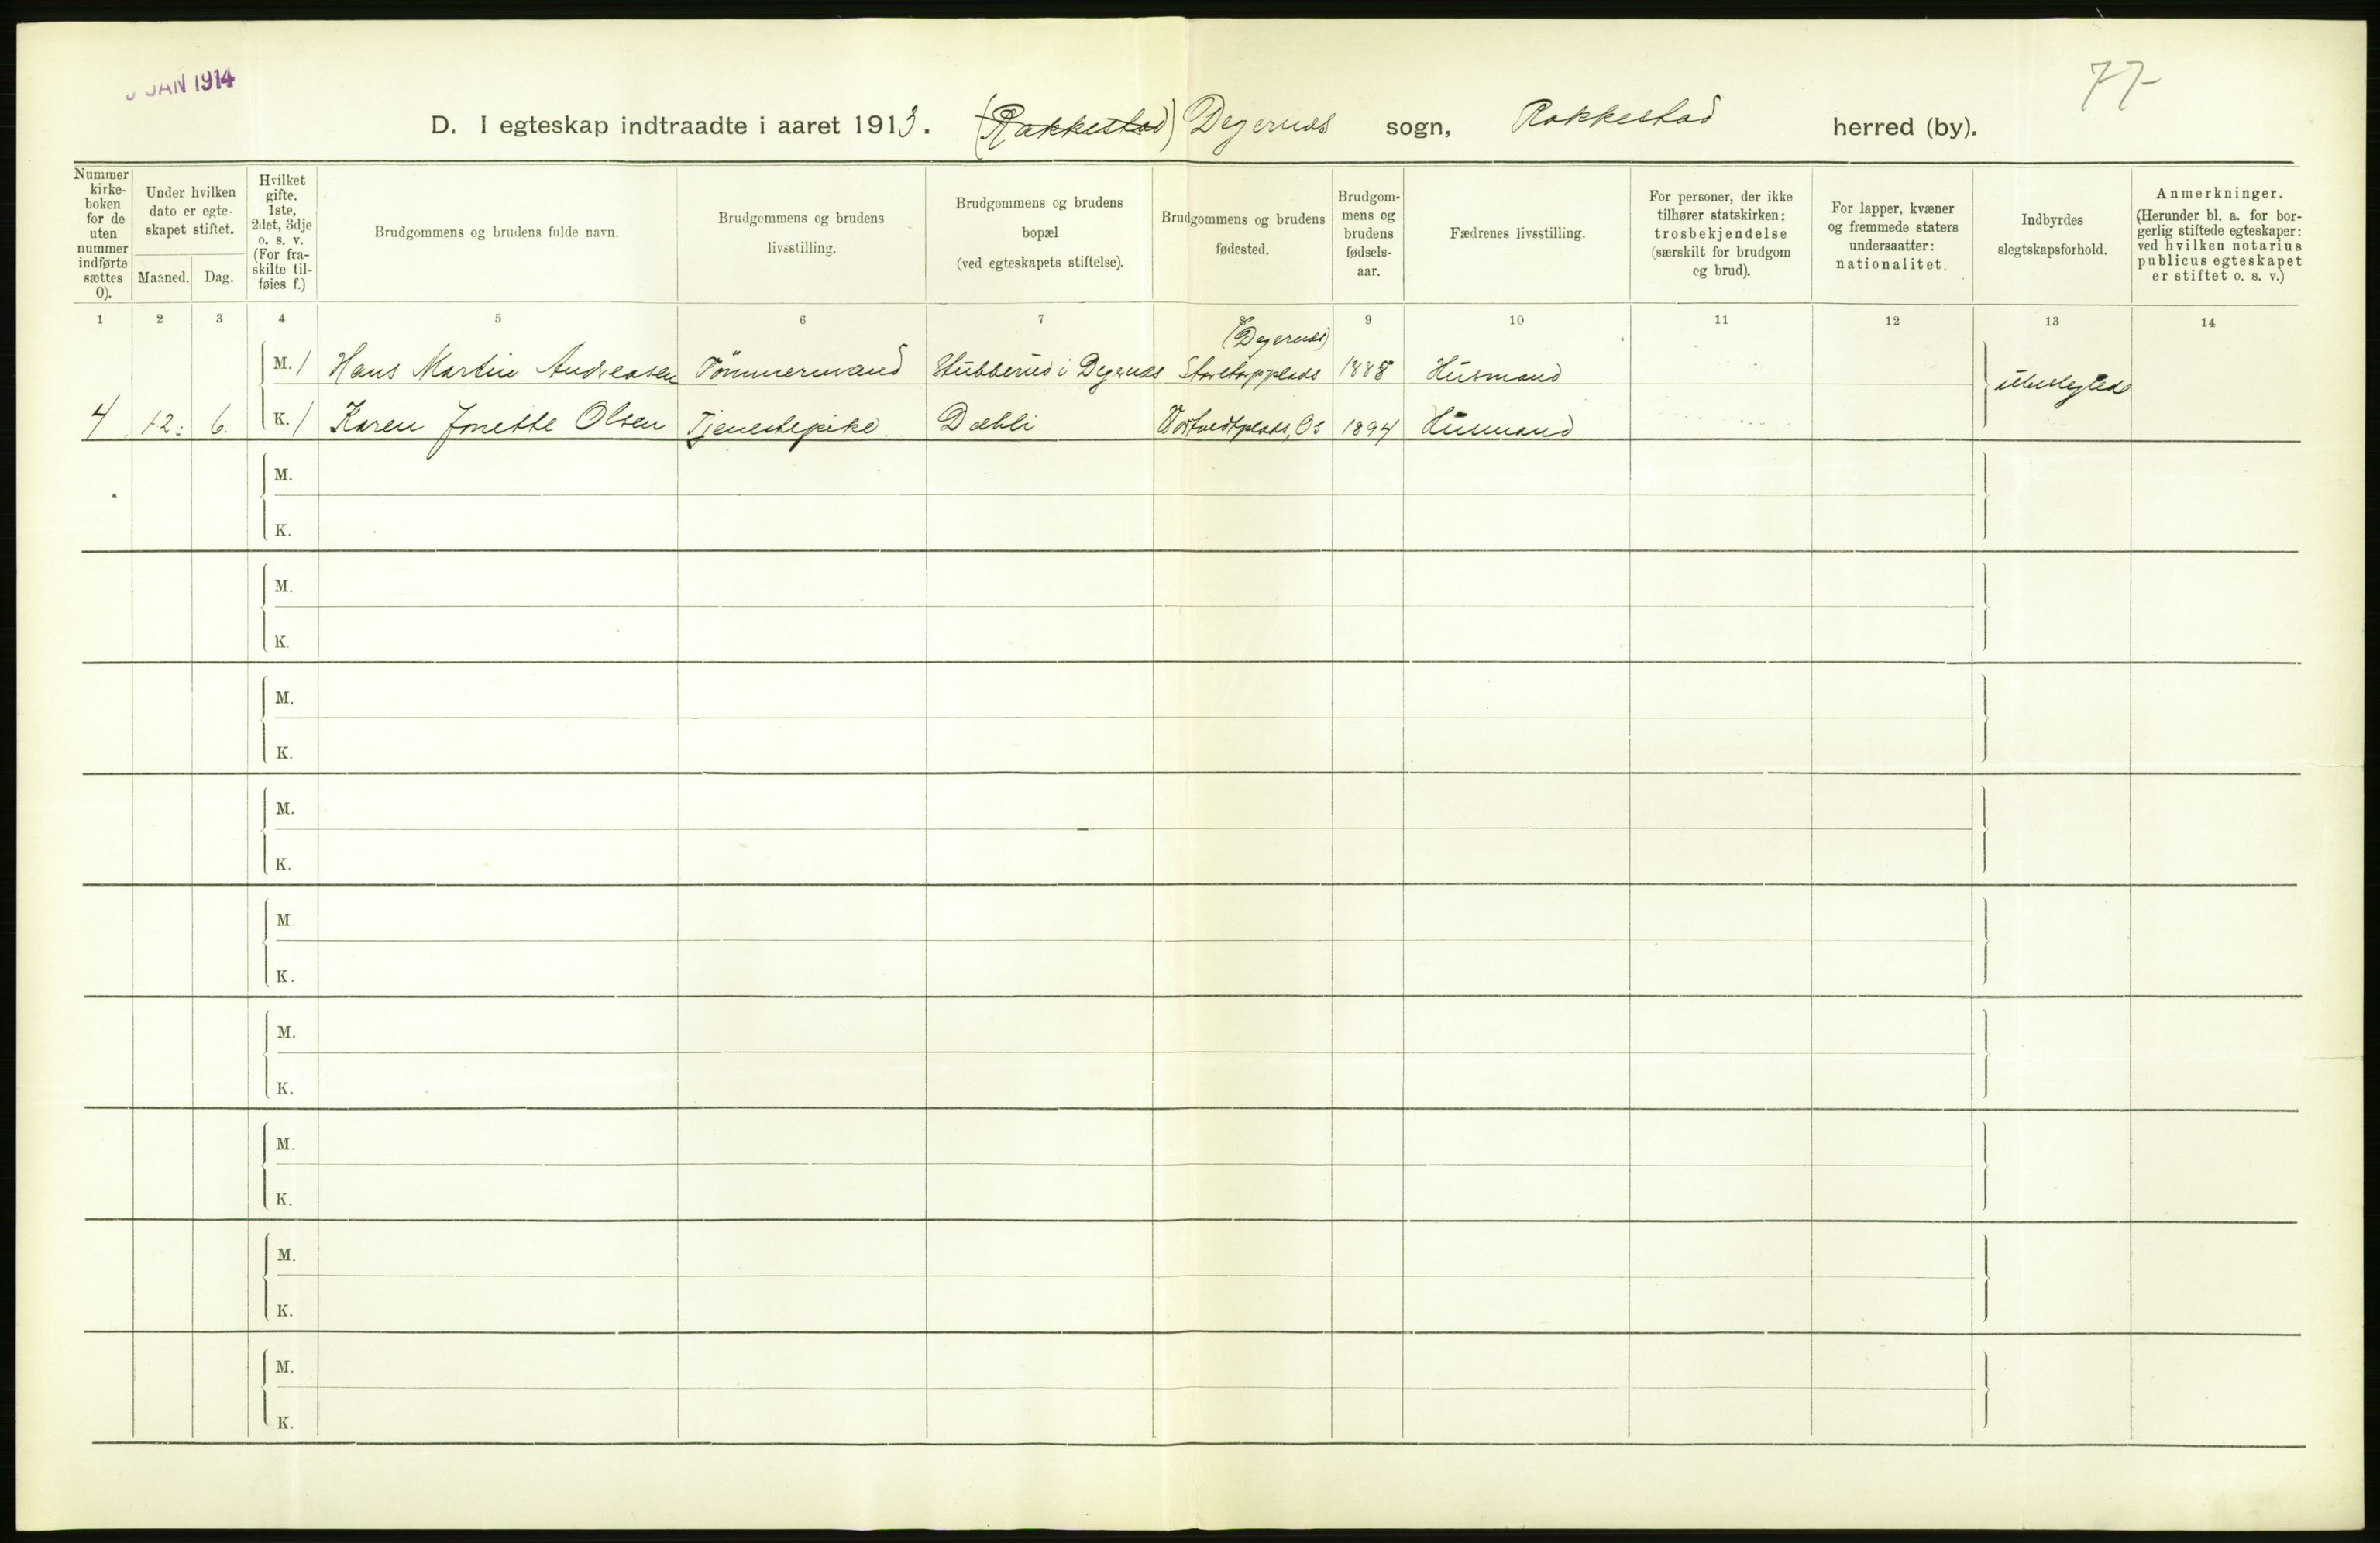 JAN 1914
77
D. I egteskap indtraadte i aaret 1913. (Rakkestad) Degernes sogn, Rakkestad herred (by).
Nummer
kirke-
boken
for de
uten
nummer
indførte
sættes
0).
Under hvilken
dato er egte-
skapet stiftet.
Maaned.
Dag.
Hvilket
gifte.
1ste,
2det, 3dje
o. s. v.
(For fra-
skilte til-
føies f.)
Brudgommens og brudens fulde navn.
Brudgommens og brudens
livsstilling.
Brudgommens og brudens
bopæl
(ved egteskapets stiftelse).
Brudgommens og brudens
fødested.
Brudgom-
mens og
brudens
fødsels-
aar.
Fædrenes livsstilling.
For personer, der ikke
tilhører statskirken:
trosbekjendelse
(særskilt for brudgom
og brud).
For lapper, kvæner
og fremmede staters
undersaatter:
nationalitet.
Indbyrdes
slegtskapsforhold.
Anmerkninger.
(Herunder bl. a. for bor-
gerlig stiftede egteskaper:
ved hvilken notarius
publicus egteskapet
er stiftet o. s. v.)
1 2 3 4 5 6 7 8 9 10 11 12 13 14
(Degernes)
M. 1 Hans Martin Andreasen Tömmermand Stubberud i Degernes 1888 Husmand
ubeslegtede
4 12. 6. K. 1 Karen Jonette Olsen Tjenestepike Dæhli Os 1894 Husmand
M.
K.
M.
K.
M.
K.
M.
K.
M.
K.
M.
K.
M.
K.
M.
K.
M.
K.